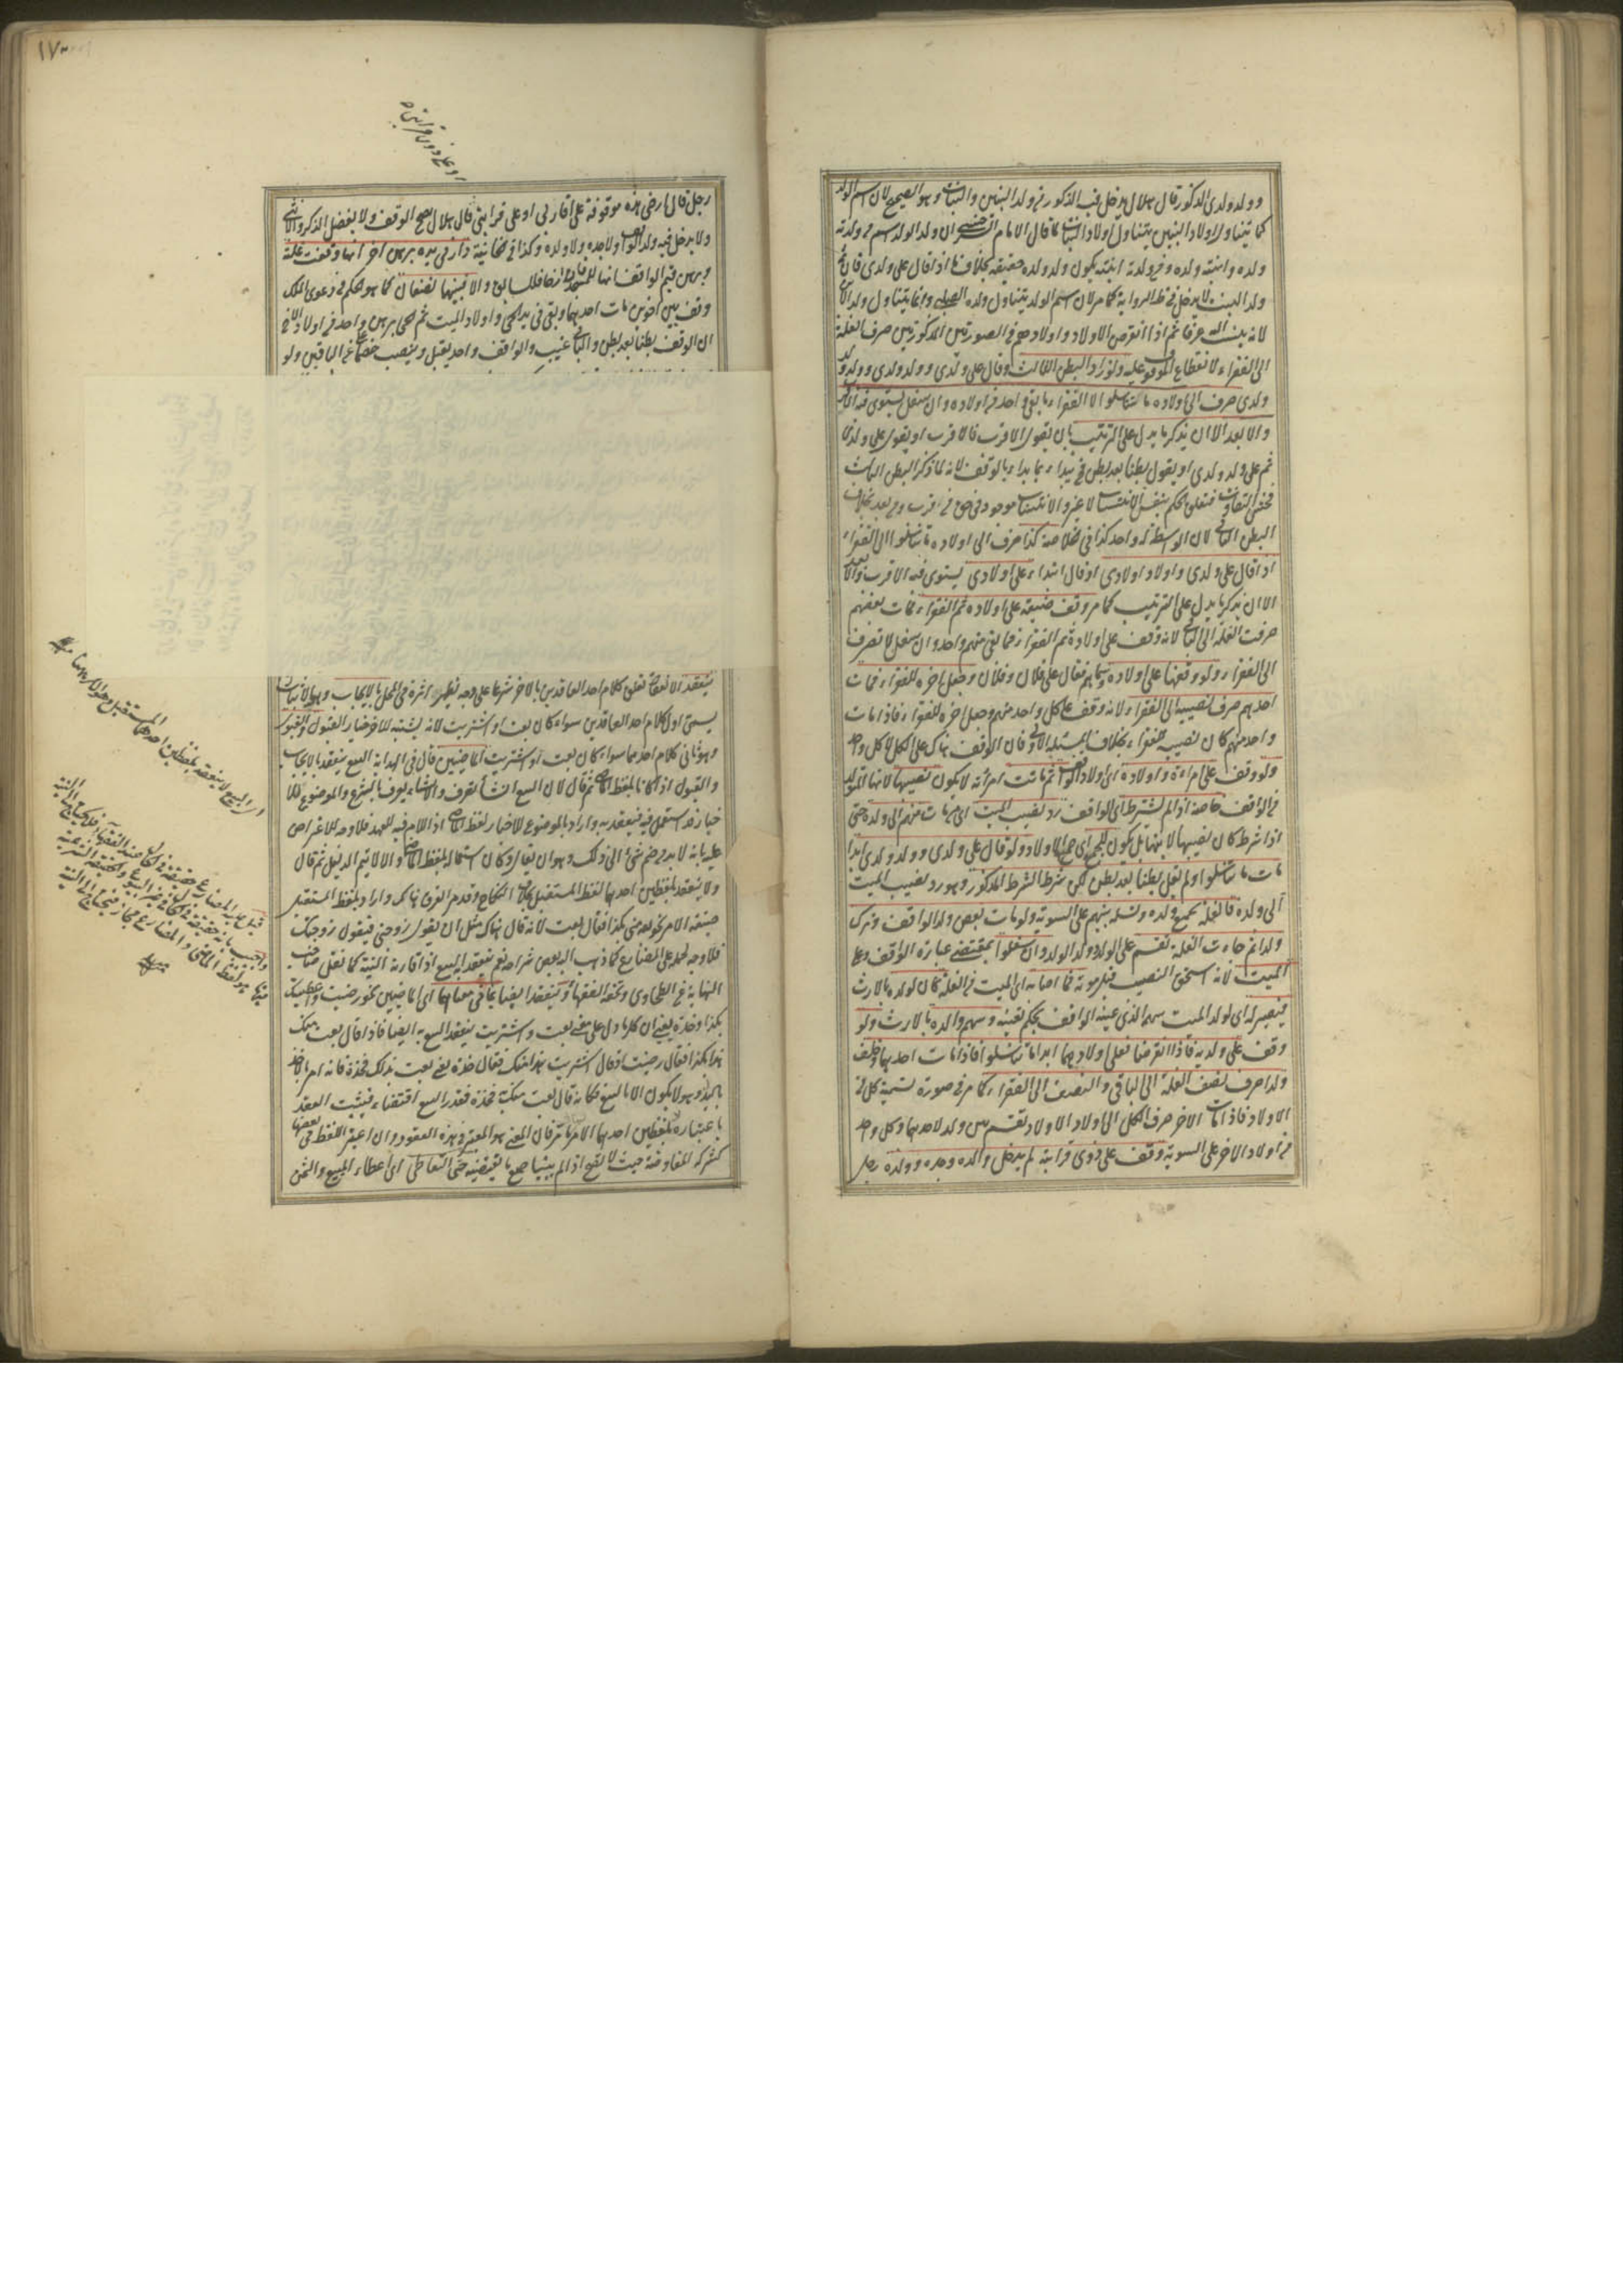 وولد ولدي الذكور قال هلال يدخل فيه الذكور من ولد البنين والبنات وهو الصحيح لان اسم الولد
كما يتناول اولاد البنين يتناول اولاد البنات لما قال الامام السرخسي ان ولد الولد اسم لمن ولدته
ولده وابنته ولده فمن ولدته ابنته يكون ولد ولده حقيقة بخلاف ما اذا قال على ولدي فان
ولد البنت لا يدخل في ظاهر الرواية كما مر لان اسم الولد يتناول ولده الصلبي وانما يتناول ولد الابن
لانه ينسب اليه عرفا ثم اذا انقرض الاولاد واولادهم في الصورتين المذكورتين صرف الغلة
الى الفقراء لانقطاع الموقوف عليه ولو زاد البطن الثالث وقال على ولدي وولد ولدي وولد ولد
ولدي صرف الى اولاده ما تناسلوا لا الفقراء ما بقي واحد من اولاده وان سفل يستوي فيه الاقرب
والابعد الا ان يذكر ما يدل على الترتيب بان يقول الاقرب فالاقرب او يقول على ولدي
ثم على ولد ولدي او يقول بطنا بعد بطن فح يبدأ بما بدأ به الواقف لانه لما ذكر البطن الثالث
فحش التفاوت فتعلق الحكم بنفس الانتساب لا غير والانتساب موجود في حق من قرب ومن بعد بخلاف
البطن الثاني لان الواسطة واحد كذا في الخلاصة كذا صرف الى اولاده ما تناسلوا لا الفقراء
اذا قال على ولدي واولاد اولادي او قال ابتداء على اولادي يستوي فيه الاقرب والابعد
الا ان يذكر ما يدل على الترتيب كما مر وقف ضيعة على اولاده ثم الفقراء فمات بعضهم
صرفت الغلة الى الباقي لانه وقف على اولاده ثم الفقراء فما بقي منهم واحد وان سفل لا تصرف
الى الفقراء ولو وقفها على اولاده وسماهم فقال على فلان وفلان وجعل اخره للفقراء فمات
احدهم صرف نصيبه الى الفقراء لانه وقف على كل واحد منهم وجعل اخره للفقراء فاذا مات
واحد منهم كان نصيبه للفقراء بخلاف المسئلة الاولى فان الوقف هناك على الكل لا كل واحد
ولو وقف على امرأته واولاده اي اولاد الواقف ثم ماتت امرأته لا يكون نصيبها لابنها المتولد
من الواقف خاصة اذا لم يشترط اي الواقف رد نصيب الميت اي من مات منهم الى ولده حتى
اذا شرط كان نصيبها لابنها بل يكون للجميع اي جميع الاولاد ولو قال على ولدي وولد ولدي ابدا
ما تناسلوا ولم يقل بطنا بعد بطن لكن شرط الشرط المذكور وهو رد نصيب الميت
الى ولده فالغلة لجميع ولده ونسله بينهم على السوية ولو مات بعض ولد الواقف وترك
ولدا ثم جاءت الغلة تقسم على الولد وولد الولد وان سفلوا بمقتضى عبارة الواقف وعلى
الميت لانه استحق النصيب قبل موته فما اصابه اي الميت من الغلة كان لولده بالارث
فيصير له اي لولد الميت سهمه الذي عينه الواقف بحكم تعيينه وسهم والده بالارث ولو
وقف على ولديه فاذا انقرضا فعلى اولادهما ابدا ما تناسلوا فاذا مات احدهما وخلف
ولدا صرف نصف الغلة الى الباقي والنصف الى الفقراء كما مر في صورة تسمية كل من
الاولاد فاذا مات الاخر صرف الكل الى اولاد الاولاد تقسم بين ولد لاحدهما وكل واحد
من اولاد الاخر على السوية وقف على ذوي قرابته لم يدخل والده وجده وولده رجل
رجل قال ارضي هذه موقوفة على اقاربي او على قرابتي قال هلال يصح الوقف ولا يفضل الذكر والانثى
ولا يدخل فيه والد الواقف ولا جده ولا ولده وكذا في الخانية دار في يده برهن اخر انها وقفت عليه
وبرهن قيم الواقف انها للمسجد فان ارخا فللسابق والا فبينهما نصفان كما هو الحكم في دعوى الملك
وقف بين اخوين مات احدهما وبقي في يد الحي واولاد الميت ثم الحي برهن على واحد من اولاد الاخ
ان الوقف بطنا بعد بطن والباقي غيب والواقف واحد يقبل وينصب خصما عن الباقين ولو
ينعقد الانعقاد تعلق كلام احد العاقدين بالاخر شرعا على وجه يظهر اثره في المحل بالايجاب وهو الاثبات
يسمى اول كلام احد العاقدين سواء كان بعت او اشتريت لانه يثبت للاخر خيار القبول والقبول
وهو ثاني كلام احدهما سواء كان بعت او اشتريت الماضيين قال في الهداية البيع ينعقد بالايجاب
والقبول اذا كانا بلفظ الماضي ثم قال لان البيع انشاء تصرف والانشاء يعرف بالشرع والموضوع للا
خبار قد استعمل فيه فينعقد به واراد بالموضوع للاخبار لفظ الماضي اذ اللام فيه للعهد فلا وجه للاعتراض
عليه بانه لا بد من ضم شيء الى ذلك وهو ان يقال وكان استعماله بلفظ الماضي والا لا يتم الدليل ثم قال
ولا ينعقد بلفظين احدهما لفظ المستقبل بخلاف النكاح وقد مر الفرق هناك واراد بلفظ المستقبل
صيغة الامر كقوله بعني بكذا فقال بعت لانه قال هناك مثل ان يقول زوجني فيقول زوجتك
فلا وجه لحمله على المضارع كما ذهب اليه بعض شراحه نعم ينعقد به البيع اذا قارنه النية كما نقل صاحب
النهاية عن الطحاوي وتحفة الفقهاء وينعقد ايضا بما في معناهما اي الماضيين نحو رضيت واعطيتك
بكذا وخذه يعني ان كل ما دل على معنى بعت واشتريت ينعقد البيع به ايضا فاذا قال بعت منك
هذا بكذا فقال رضيت او قال اشتريت هذا منك فقال خذه يعني بعت بذلك فخذه فانه امر بالاخذ
بالبدل وهو لا يكون الا بالبيع فكانه قال بعت منك به فخذه فقدر البيع اقتضاء فيثبت العقد
باعتباره بلفظين احدهما الامر ما مر فان المعنى هو المعتبر في هذه العقود وان اعتبر اللفظ في بعضها
كشركة المفاوضة حيث لا تصح اذا لم يبينا جميع ما تقتضيه حتى التعاطي اي اعطاء المبيع والثمن
او على ذوي قرابته
اي البيع لا ينعقد بلفظين احدهما المستقبل وهو الامر